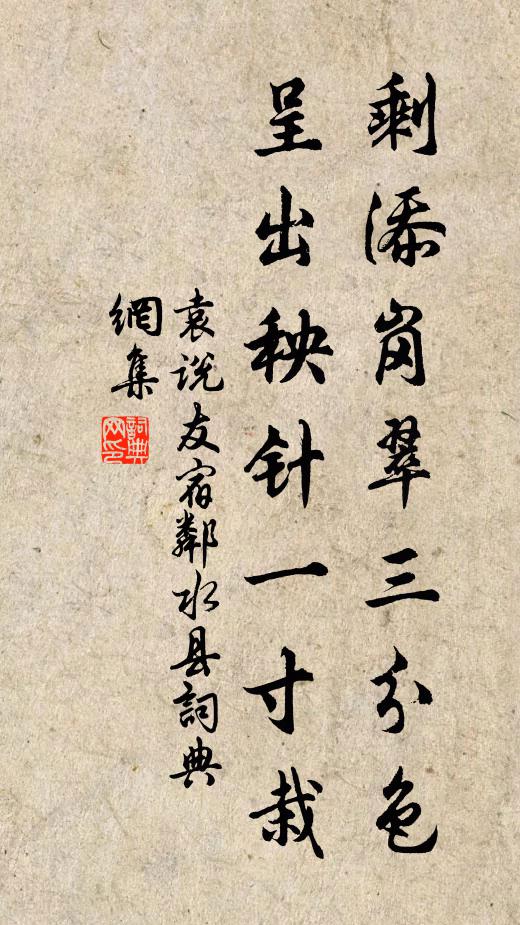 剩添岗翠三分色
呈出秧针一寸栽
袁说友宿鄰水县詞典
網集
詞典网印